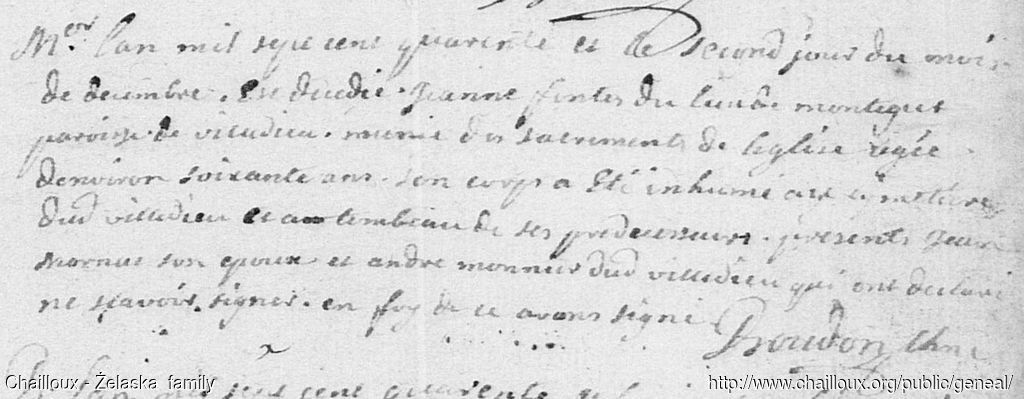 Mor. lan mil sept cent quarente et le second jour du mois
de decembre. Est decedée. Jeanne du lieu de monteguet
paroisse de villedieu. munie des sacrements de leglise agée
denviron soixante ans. son corp a été inhumé au cimetiere
dud villedieu et au tembeau de ses predecesseurs. presents Jean
son epoux et andre monnier dud villedieu qui ont declaré
ne scavoir signer. en foy de ce avons signé
Boudon
lan mil sept cent quarente
Chailloux - Żelaska family
http://www.chailloux.org/public/geneal/